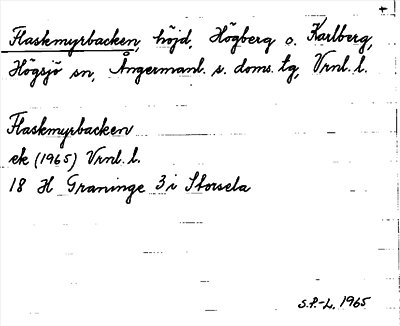 +
Flaskmyrbacken, höjd, Högberg o. Karlberg,
Högsjö sn, Ångermanl. s. doms. tg, Vrnl. l.
Flaskmyrbacken
ek (1965) Vrnl. l.
18 H Graninge 3 i Storsela
S.P.-L. 1965